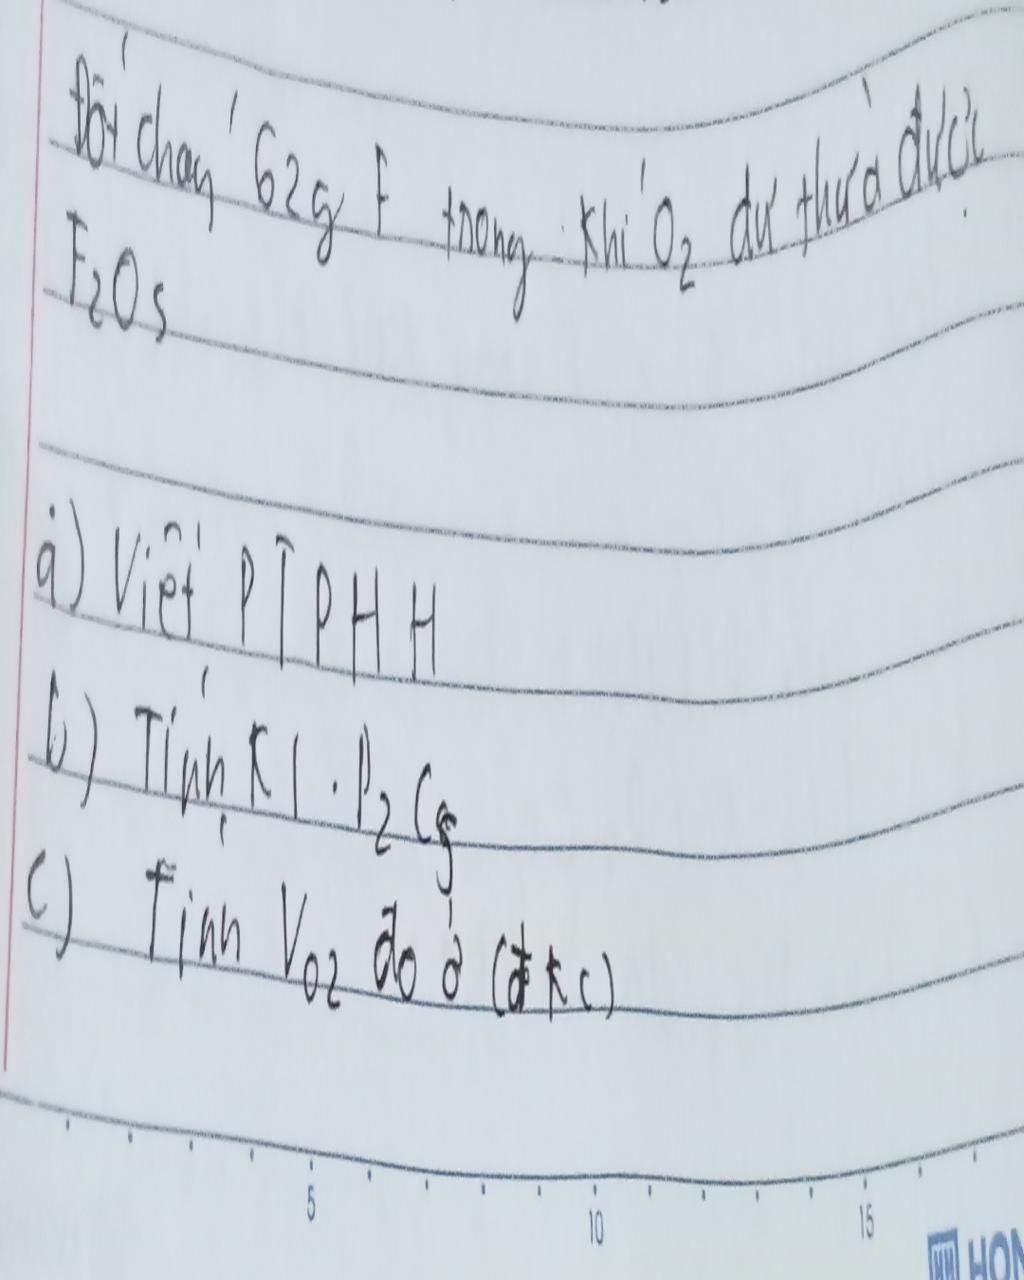 Đốt cháy 62g F trong khí O2 dư thừa được
F2O5
a) Viết PTPHH
b) Tính Kl. P2 (g
c) Tính VO2 đo ở (đkc)
5 10 15
HON